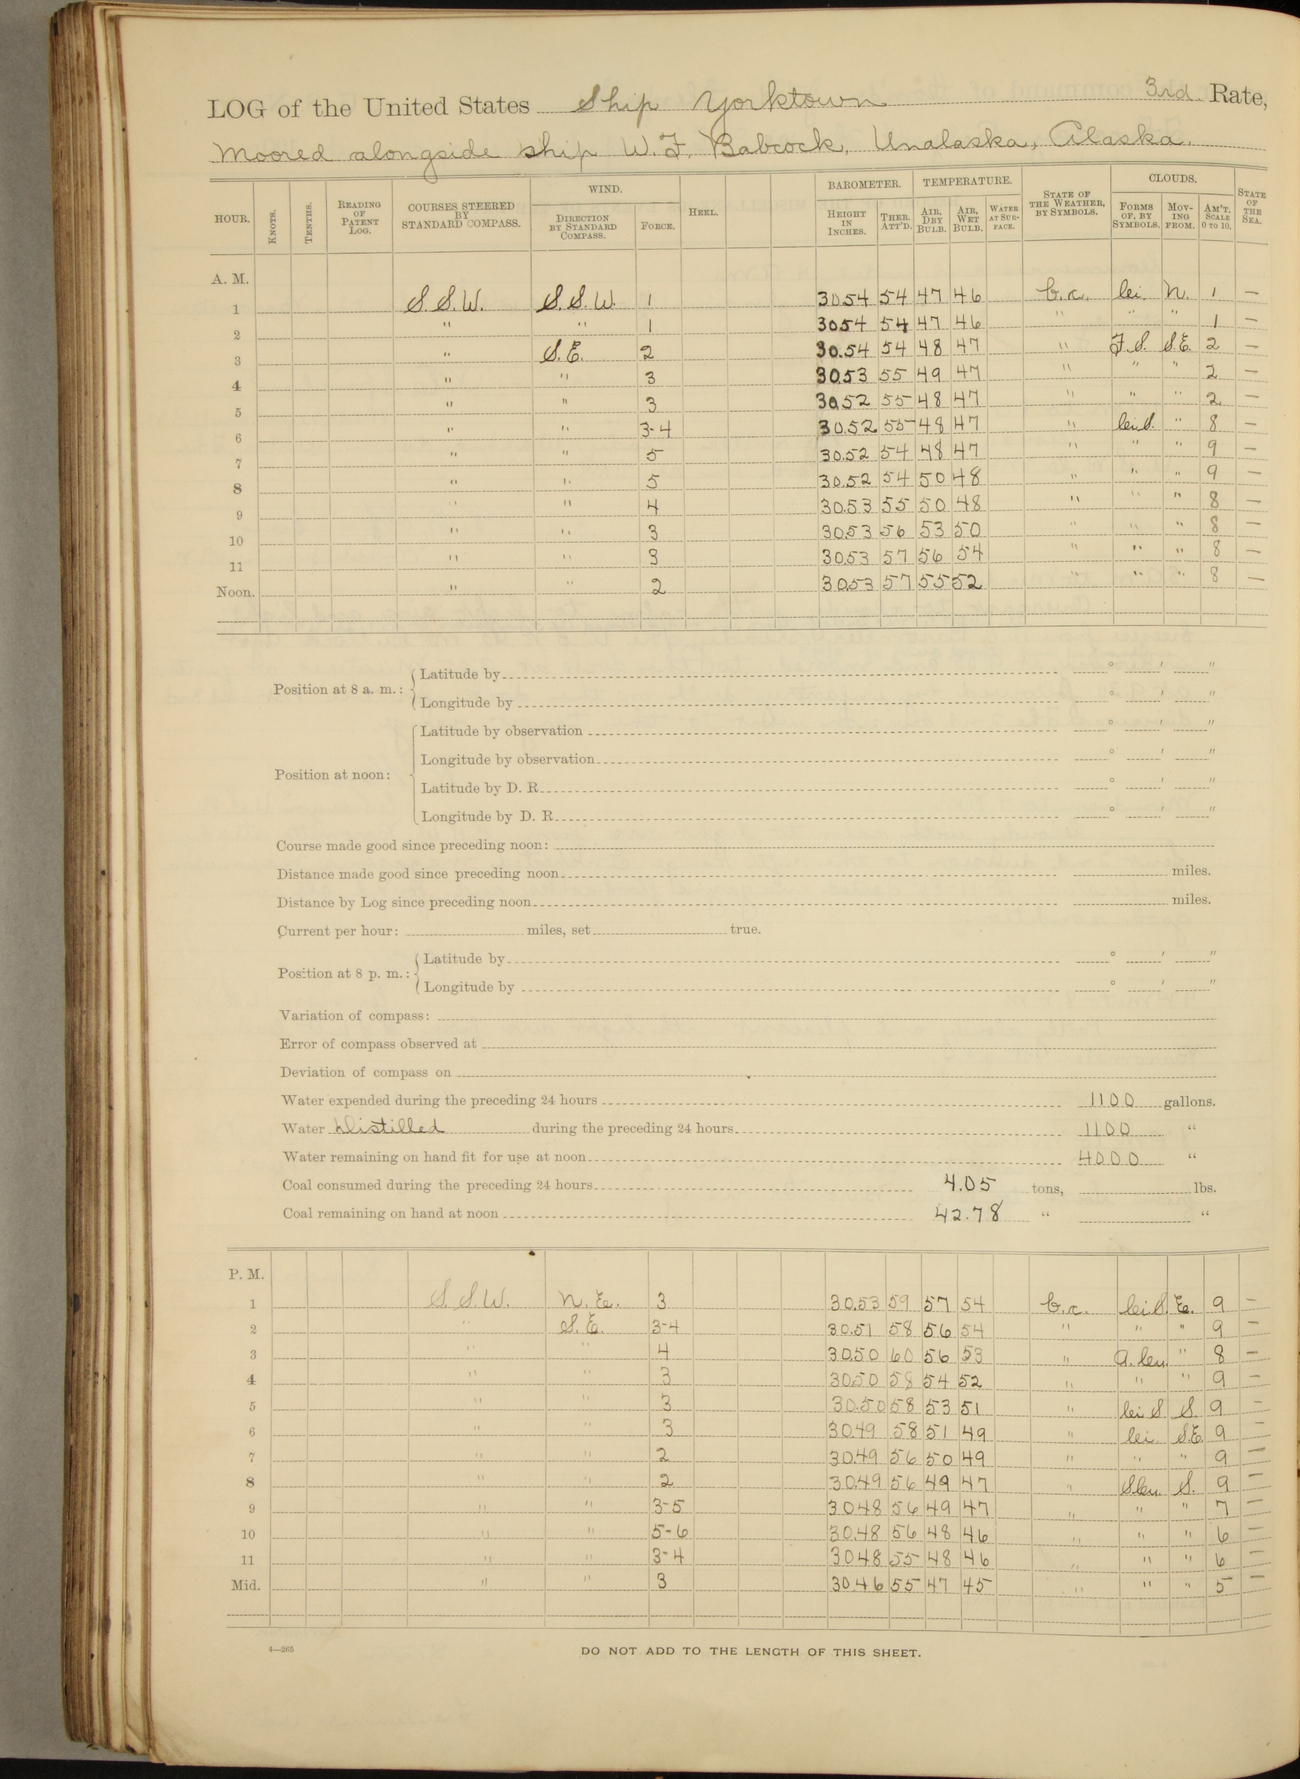 LOG of the United States Ship Yorktown 3rd Rate,
Moored alongside ship W. F. Babcock, Unalaska, Alaska.
HOUR. KNOTS. TENTHS. READING OF PATENT LOG. COURSES STEERED BY STANDARD COMPASS. WIND. DIRECTION BY STANDARD COMPASS. FORCE. HEEL. BAROMETER. HEIGHT IN INCHES. THER. ATT'D. TEMPERATURE. AIR, DRY BULB. AIR, WET BULB. WATER AT SURFACE. STATE OF THE WEATHER, BY SYMBOLS. CLOUDS. FORMS OF, BY SYMBOLS. MOVING FROM. AM'T. SCALE 0 TO 10. STATE OF THE SEA.
A. M.
1 S.S.W. S.S.W. 1 30.54 54 47 46 b.c. ci N. 1 —
2 " " 1 30.54 54 47 46 " " " 1 —
3 " S.E. 2 30.54 54 48 47 " F.S. S.E. 2 —
4 " " 3 30.53 55 49 47 " " " 2 —
5 " " 3 30.52 55 48 47 " " " 2 —
6 " " 3-4 30.52 55 48 47 " " 8 —
7 " " 5 30.52 54 48 47 " " " 9 —
8 " " 5 30.52 54 50 48 " " " 9 —
9 " " 4 30.53 55 50 48 " " " 8 —
10 " " 3 30.53 56 53 50 " " " 8 —
11 " " 3 30.53 57 56 54 " " " 8 —
Noon. " " 2 30.53 57 55 52 " " " 8 —
Position at 8 a. m.: Latitude by ° ′ ″
Longitude by ° ′ ″
Position at noon: Latitude by observation ° ′ ″
Longitude by observation ° ′ ″
Latitude by D. R. ° ′ ″
Longitude by D. R. ° ′ ″
Course made good since preceding noon:
Distance made good since preceding noon miles.
Distance by Log since preceding noon miles.
Current per hour: miles, set true.
Position at 8 p. m.: Latitude by ° ′ ″
Longitude by ° ′ ″
Variation of compass:
Error of compass observed at
Deviation of compass on
Water expended during the preceding 24 hours 1100 gallons.
Water Distilled during the preceding 24 hours 1100 "
Water remaining on hand fit for use at noon 4000 "
Coal consumed during the preceding 24 hours 4.05 tons, lbs.
Coal remaining on hand at noon 42.78 " "
P. M.
1 S.S.W. N.E. 3 30.53 59 57 54 b.c. E. 9 —
2 " S.E. 3-4 30.51 58 56 54 " " " 9 —
3 " " 4 30.50 60 56 53 " " 8 —
4 " " 3 30.50 58 54 52 " " " 9 —
5 " " 3 30.50 58 53 51 " S 9 —
6 " " 3 30.49 58 51 49 " S.E. 9 —
7 " " 2 30.49 56 50 49 " " " 9 —
8 " " 2 30.49 56 49 47 " S. 9 —
9 " " 3-5 30.48 56 49 47 " " " 7 —
10 " " 5-6 30.48 56 48 46 " " " 6 —
11 " " 3-4 30.48 55 48 46 " " " 6 —
Mid. " " 3 30.46 55 47 45 " " " 5 —
4—265
DO NOT ADD TO THE LENGTH OF THIS SHEET.